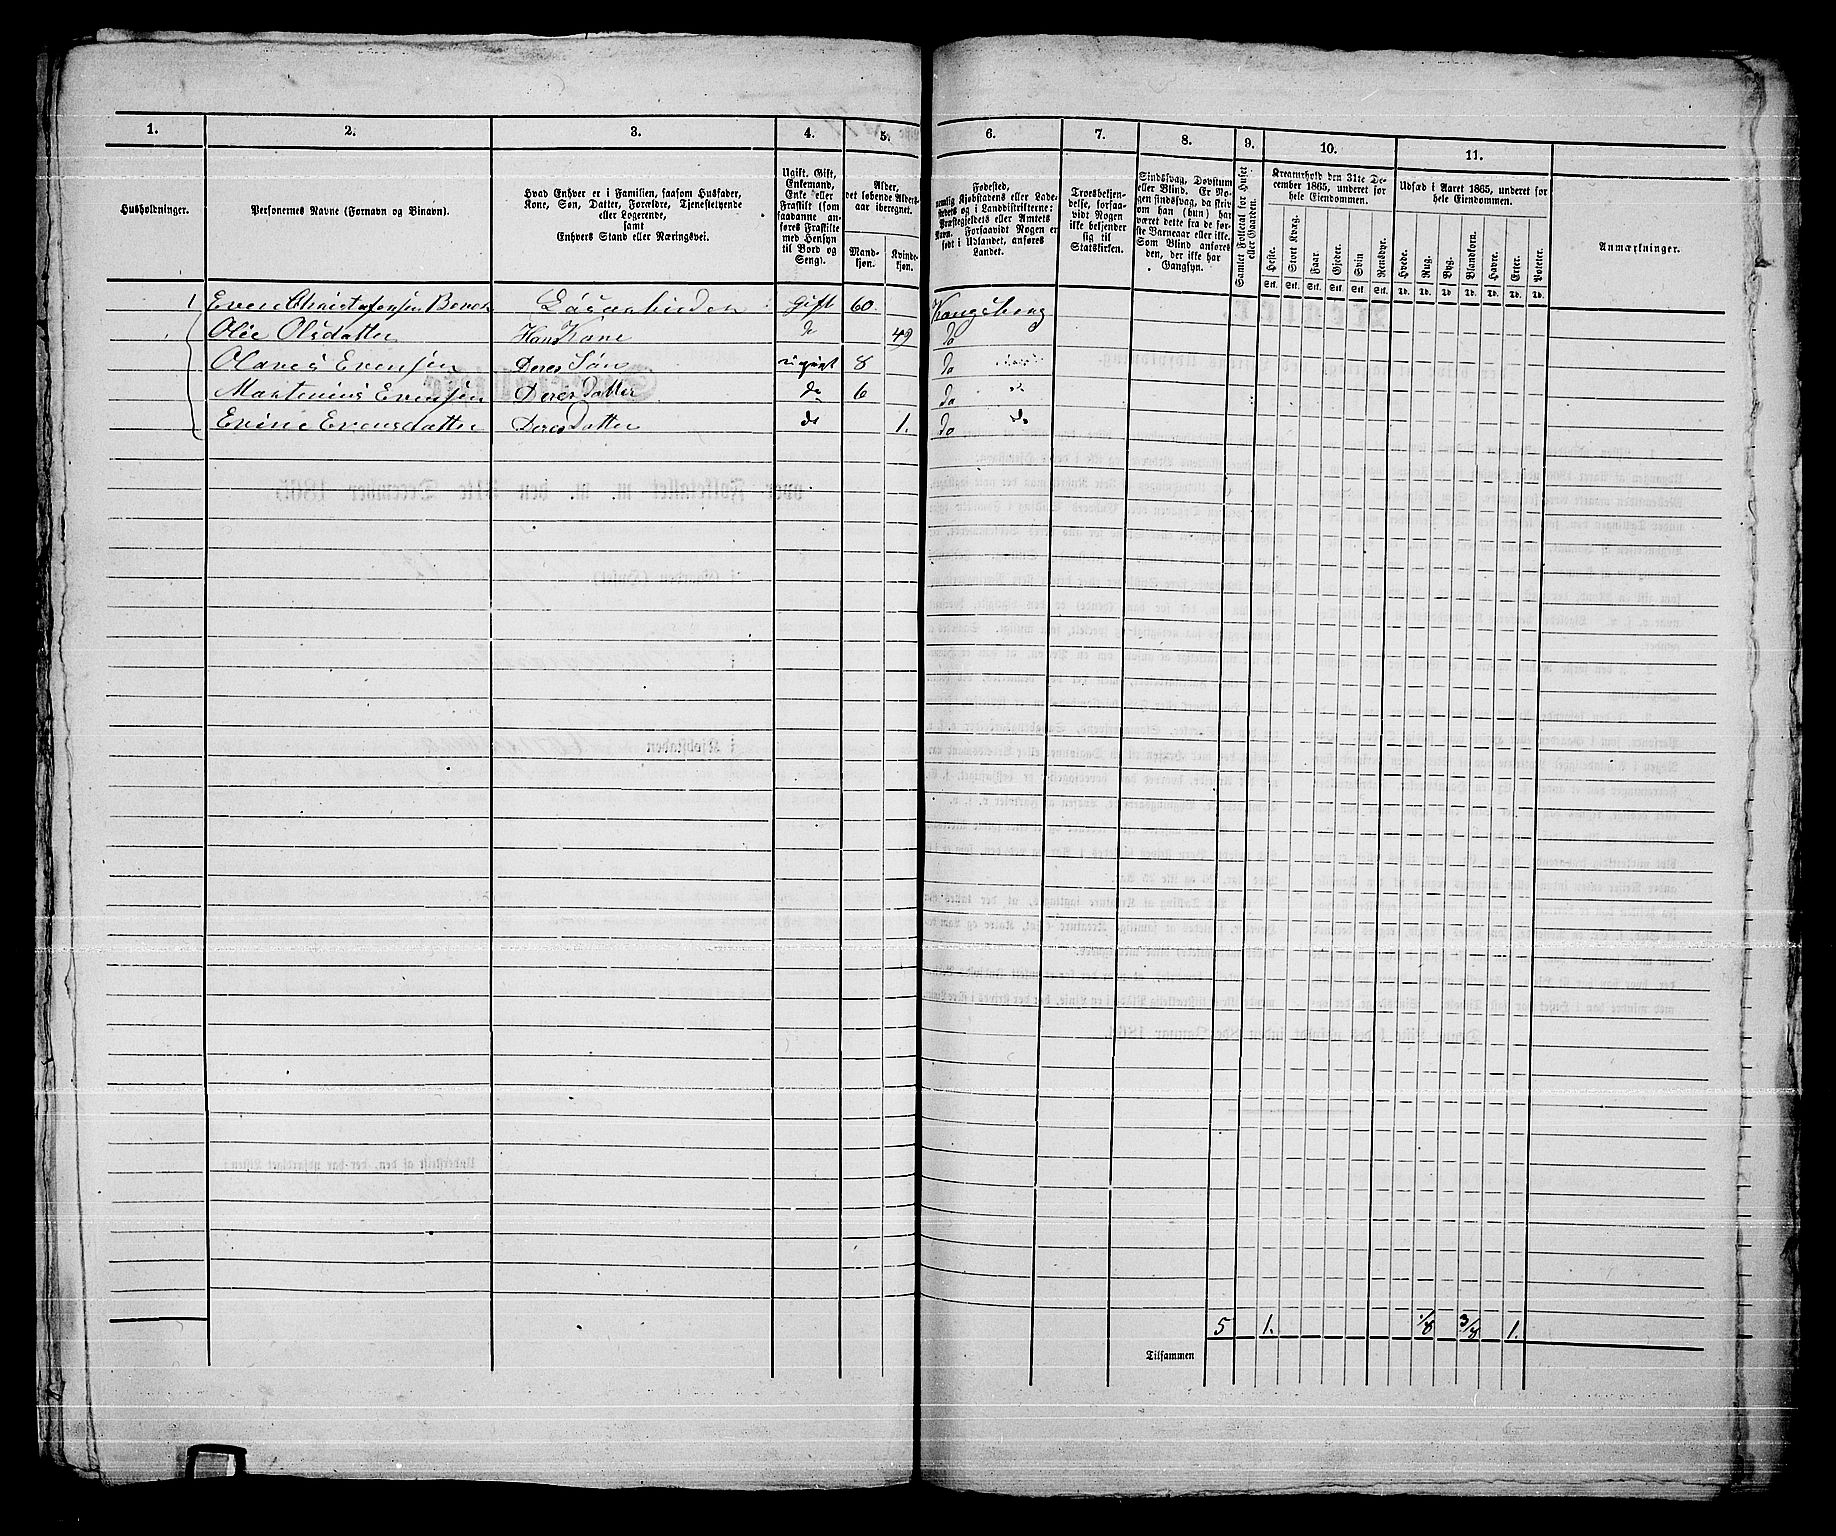 1. 2. 3. 4. 5. 6. 7. 8. 9. 10. 11.
Husholdninger.
Personernes Navne (Fornavn og Binavn).
Hvad Enhver er i Familien, saasom Husfader,
Kone, Søn, Datter, Forældre, Tjenestetyende
eller Logerende,
samt
Enhvers Stand eller Næringsvei.
Ugift, Gift,
Enkemand,
Enke eller
Fraskilt (som
saadanne an-
føres Fraskilte
med Hensyn
til Bord og
Seng).
Alder,
det løbende Alders-
aar iberegnet.
Mand-
kjøn.
Kvinde-
kjøn.
Fødested,
nemlig Kjøbstadens eller Lade-
stedets og i Landdistrikterne:
Præstegjeldets eller Amtets
Navn. Forsaavidt Nogen er
født i Udlandet, anføres
Landet.
Troesbekjen-
delse, forsaa-
vidt Nogen
ikke bekjender
sig til
Statskirken.
Sindssvag, Døvstum
eller Blind. Er No-
gen sindssvag, da skriv
om han (hun) har
været dette fra de før-
ste Barneaar eller ikke.
Som Blind anføres
den, der ikke har
Gangsyn.
Samlet Folketal for Huset
eller Gaarden.
Kreaturhold den 31te De-
cember 1865, underet for
hele Eiendommen.
Heste. Stort Kvæg. Faar. Gjeder. Svin Rensdyr.
Stk. Stk. Stk. Stk. Stk. Stk.
Udsæd i Aaret 1865, underet for
hele Eiendommen.
Hvede. Rug. Byg. Blandkorn. Havre. Erter. Poteter.
Td. Td. Td. Td. Td. Td. Td.
Anmærkninger.
1 Even Christofersen Gift 60. Kongsberg
Olie Olsdatter Hans Kone do 49 do
Olaves Evensen Deres Søn ugivt 8 do
Martenius Evensen Deres Datter do 6 do
Evine Evensdatter Deres Datter do 1. do do
5 1. 1/8 3/8 1.
Tilsammen